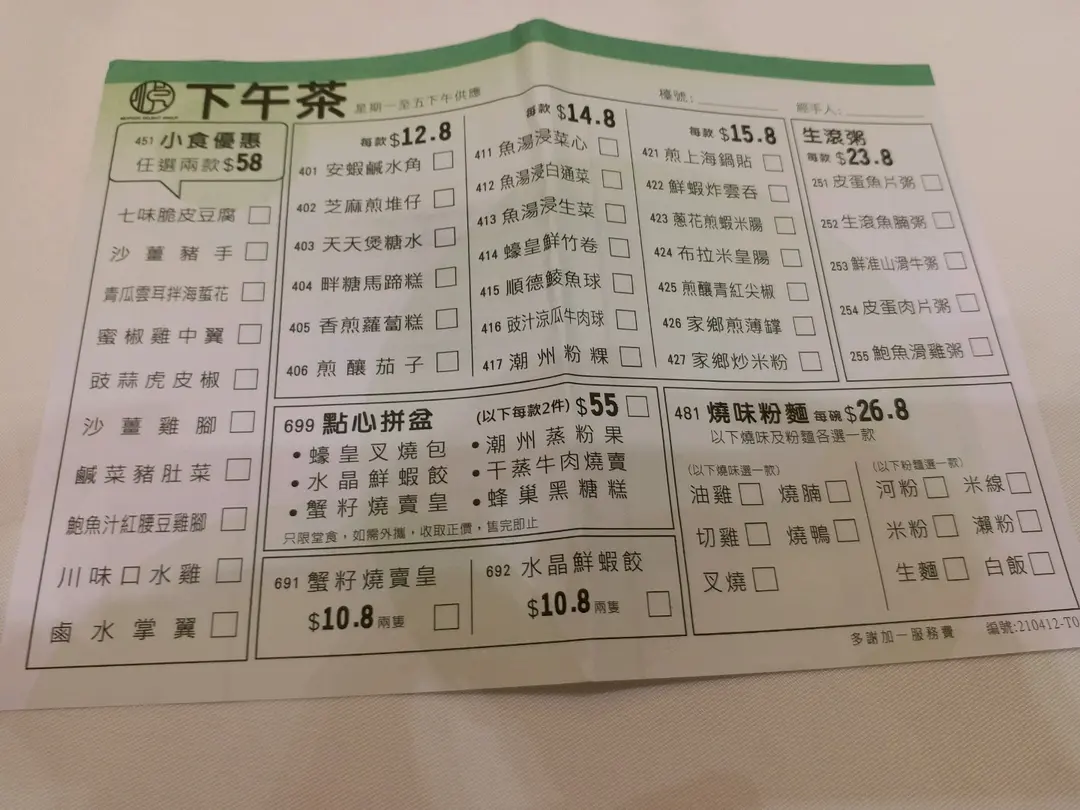 下午茶 星期一至五下午供應
檯號:
經手人:
451 小食優惠
任選兩款$58
七味脆皮豆腐
沙薑豬手
青瓜雲耳拌海蜇花
蜜椒雞中翼
豉蒜虎皮椒
沙薑雞腳
鹹菜豬肚菜
鮑魚汁紅腰豆雞腳
川味口水雞
鹵水掌翼
每款 $12.8
401 安蝦鹹水角
402 芝麻煎堆仔
403 天天煲糖水
404 畔糖馬蹄糕
405 香煎蘿蔔糕
406 煎釀茄子
每款 $14.8
411 魚湯浸菜心
412 魚湯浸白通菜
413 魚湯浸生菜
414 蠔皇鮮竹卷
415 順德鯪魚球
416 豉汁涼瓜牛肉球
417 潮州粉粿
每款 $15.8
421 煎上海鍋貼
422 鮮蝦炸雲吞
423 蔥花煎蝦米腸
424 布拉米皇腸
425 煎釀青紅尖椒
426 家鄉煎薄罉
427 家鄉炒米粉
生滾粥
每款 $23.8
251 皮蛋魚片粥
252 生滾魚腩粥
253 鮮准山滑牛粥
254 皮蛋肉片粥
255 鮑魚滑雞粥
699 點心拼盆 (以下每款2件) $55
• 蠔皇叉燒包
• 水晶鮮蝦餃
• 蟹籽燒賣皇
• 潮州蒸粉果
• 干蒸牛肉燒賣
• 蜂巢黑糖糕
只限堂食，如需外攜，收取正價，售完即止
691 蟹籽燒賣皇
$10.8 兩隻
692 水晶鮮蝦餃
$10.8 兩隻
481 燒味粉麵 每碗 $26.8
以下燒味及粉麵各選一款
(以下燒味選一款)
油雞 燒腩
切雞 燒鴨
叉燒
(以下粉麵選一款)
河粉 米線
米粉 瀨粉
生麵 白飯
多謝加一服務費
編號:210412-T0